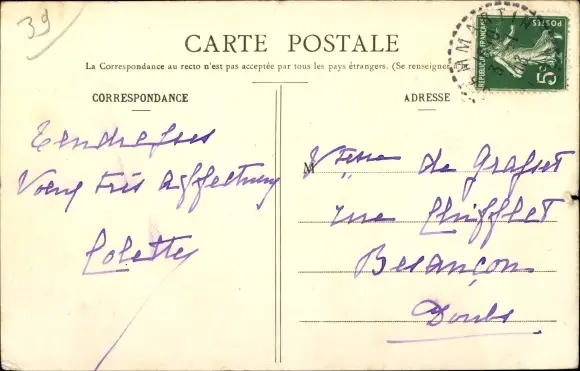 39
CARTE POSTALE
La Correspondance au recto n'est pas acceptée par tous les pays étrangers. (Se renseigner à
CORRESPONDANCE
ADRESSE
Tendresses
Voeux très affectueux
Colette
M Vtesse de Grasset
rue Chifflet
Besançon
Doubs
POSTES
REPUBLIQUE FRANÇAISE
5c